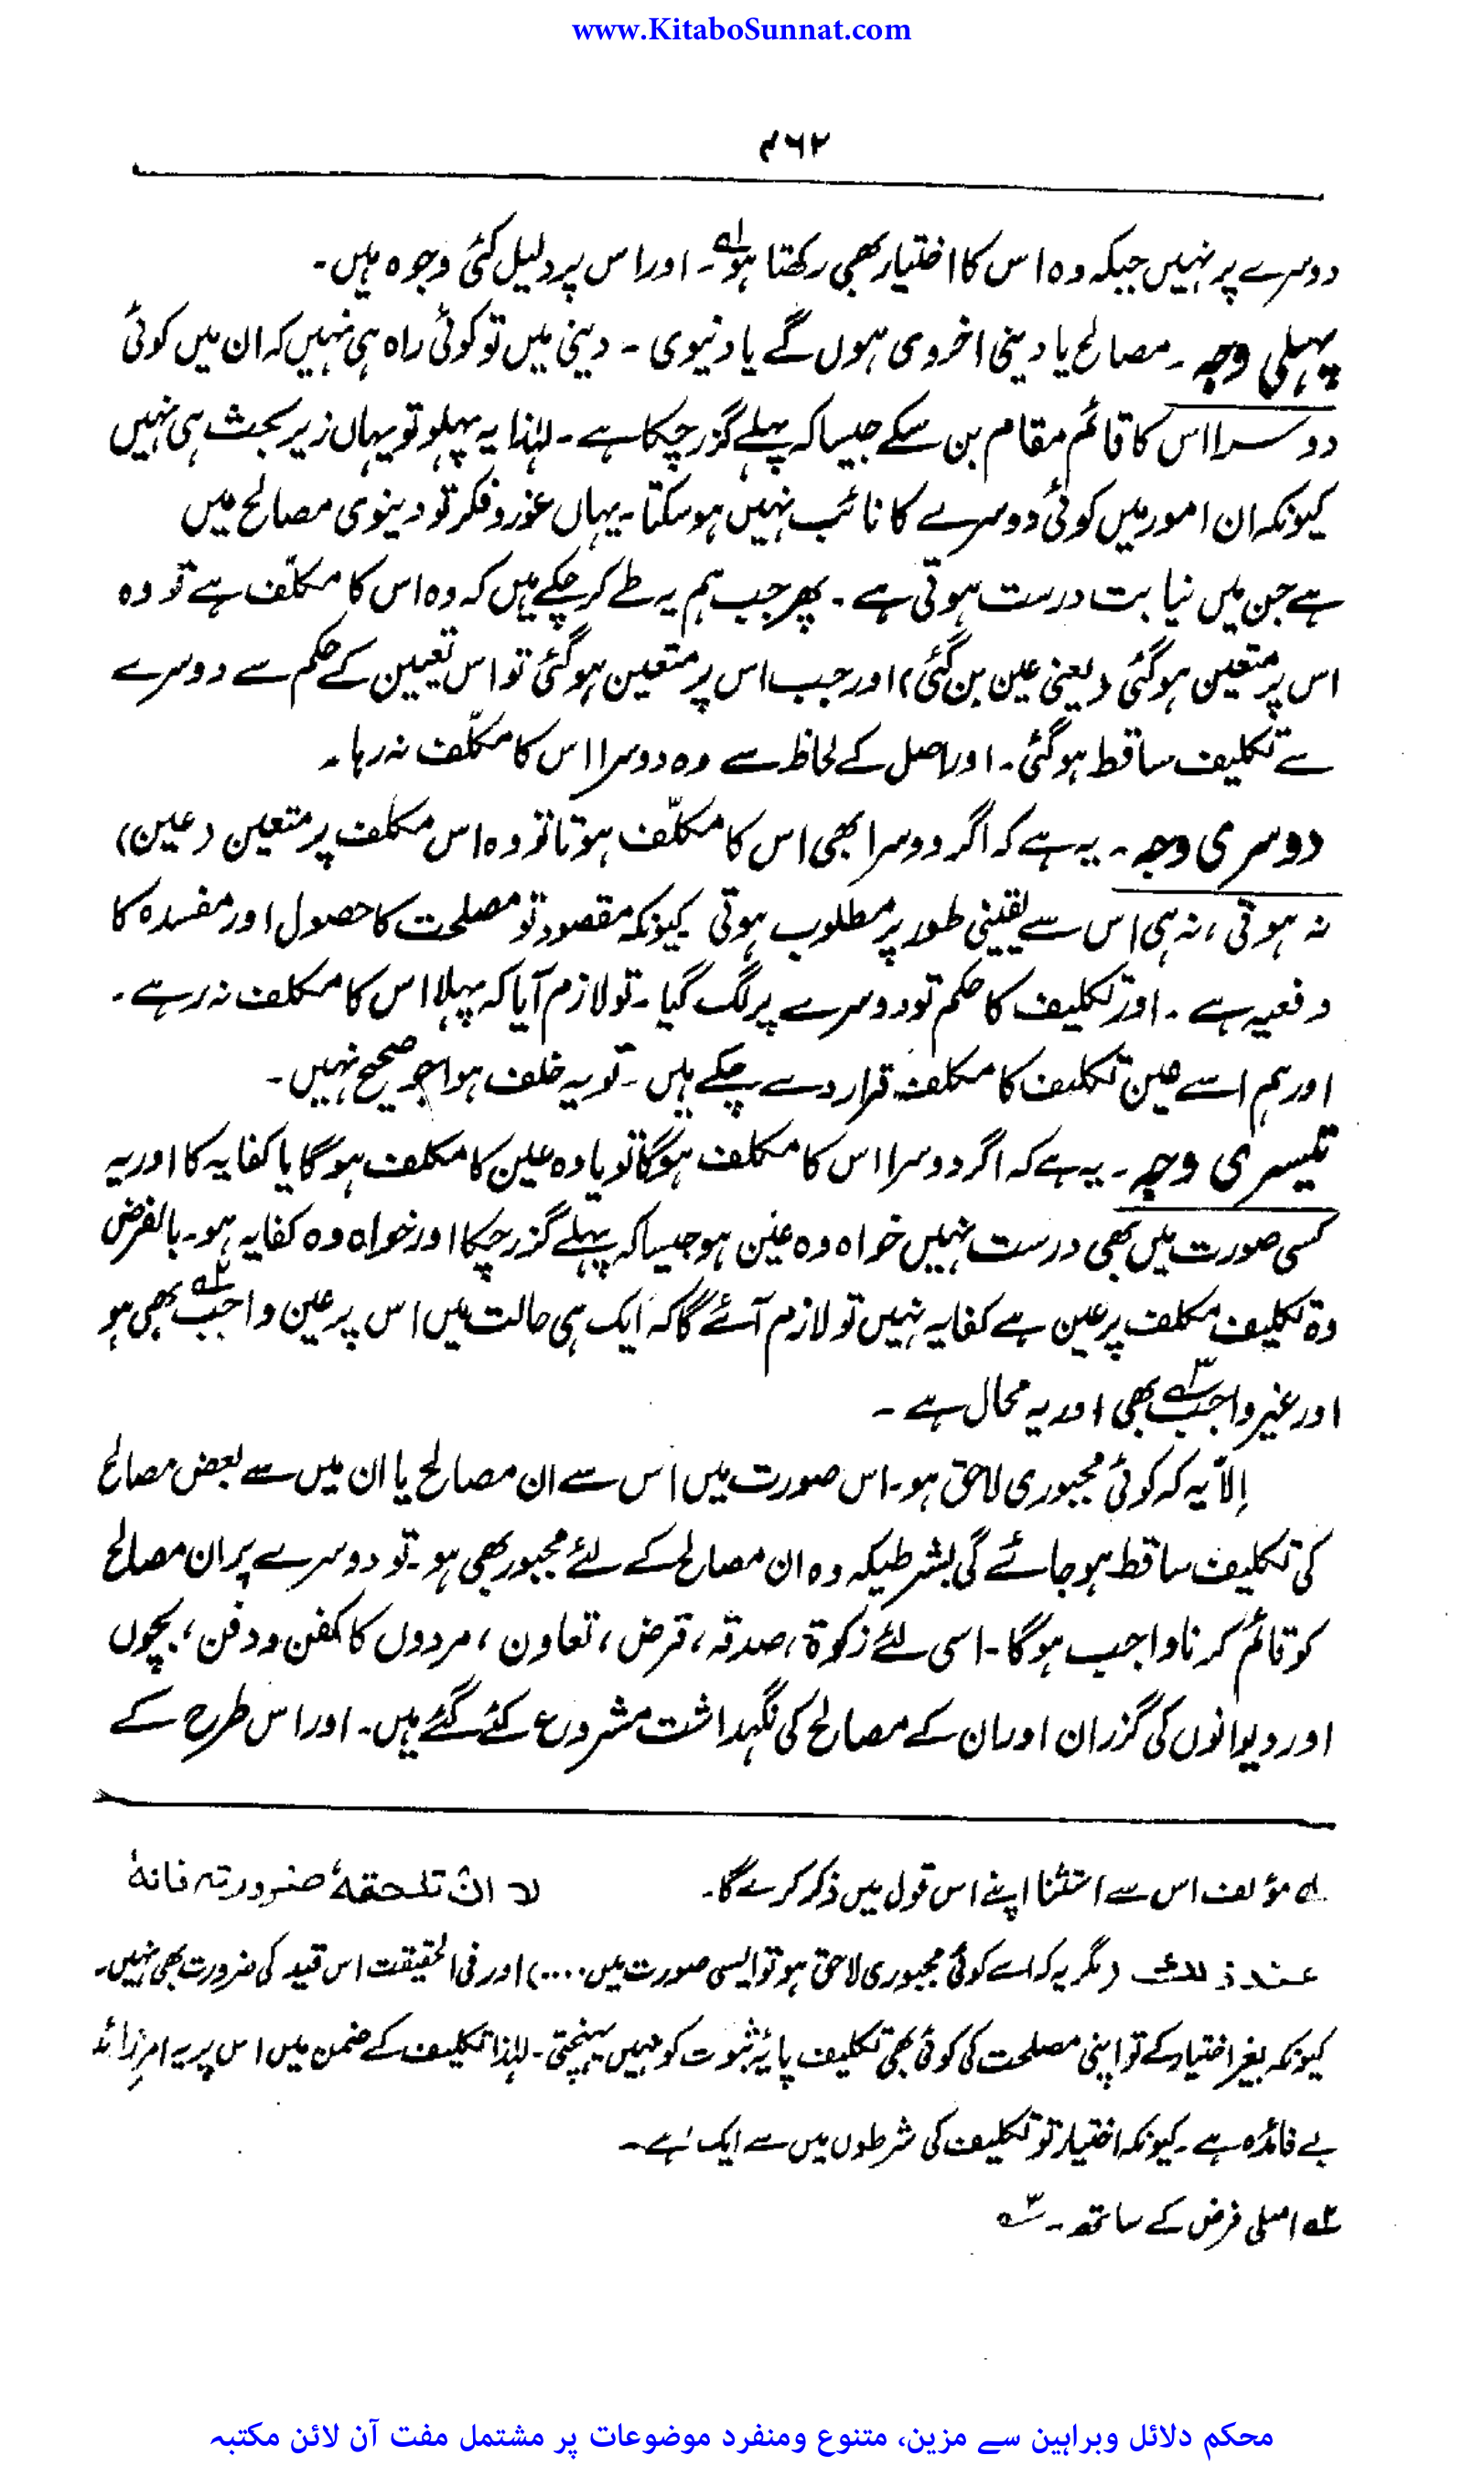 www.KitaboSunnat.com
۴۶۲
دوسرے پر نہیں جبکہ وہ اس کا اختیار بھی رکھتا ہو۱؎۔ اور اس پر دلیل کئی وجوہ ہیں۔
پہلی وجہ ۔ مصالح یا دینی اخروی ہوں گے یا دنیوی ۔ دینی میں تو کوئی راہ ہی نہیں کہ ان میں کوئی
دوسرا اس کا قائم مقام بن سکے جیسا کہ پہلے گزر چکا ہے۔ لہٰذا یہ پہلو تو یہاں زیر بحث ہی نہیں
کیونکہ ان امور میں کوئی دوسرے کا نائب نہیں ہو سکتا۔ یہاں غور و فکر تو دینوی مصالح میں
ہے جن میں نیابت درست ہوتی ہے ۔ پھر جب ہم یہ طے کر چکے ہیں کہ وہ اس کا مکلّف ہے تو وہ
اس پر متعین ہو گئی (یعنی عین بن گئی) اور جب اس پر متعین ہو گئی تو اس تعیین کے حکم سے دوسرے
سے تکلیف ساقط ہو گئی۔ اور اصل کے لحاظ سے وہ دوسرا اس کا مکلّف نہ رہا ۔
دوسری وجہ ۔ یہ ہے کہ اگر دوسرا بھی اس کا مکلّف ہوتا تو وہ اس مکلف پر متعین (عین)
نہ ہوتی ، نہ ہی اس سے یقینی طور پر مطلوب ہوتی کیونکہ مقصود تو مصلحت کا حصول اور مفسدہ کا
دفعیہ ہے ۔ اور تکلیف کا حکم تو دوسرے پر لگ گیا ۔ تو لازم آیا کہ پہلا اس کا مکلف نہ رہے ۔
اور ہم اسے عین تکلیف کا مکلف قرار دے چکے ہیں ۔ تو یہ خلف ہوا جو صحیح نہیں ۔
تیسری وجہ ۔ یہ ہے کہ اگر دوسرا اس کا مکلف ہو گا تو یا وہ عین کا مکلف ہو گا یا کفایہ کا اور یہ
کسی صورت میں بھی درست نہیں خواہ وہ عین ہو جیسا کہ پہلے گزر چکا اور خواہ وہ کفایہ ہو۔ بالفرض
وہ تکلیف مکلف پر عین ہے کفایہ نہیں تو لازم آئے گا کہ ایک ہی حالت میں اس پر عین واجب۲؎ بھی ہو
اور غیر واجب۳؎ بھی اور یہ محال ہے ۔
اِلاّ یہ کہ کوئی مجبوری لاحق ہو۔ اس صورت میں اس سے ان مصالح یا ان میں سے بعض مصالح
کی تکلیف ساقط ہو جائے گی بشرطیکہ وہ ان مصالح کے لئے مجبور بھی ہو۔ تو دوسرے پر ان مصالح
کو قائم کرنا واجب ہو گا۔ اسی لئے زکوٰۃ، صدقہ ، قرض ، تعاون ، مردوں کا کفن و دفن ، بچوں
اور دیوانوں کی گزران اور ان کے مصالح کی نگہداشت مشروع کئے گئے ہیں۔ اور اس طرح کے
۱؎ مؤلف اس سے استثنا اپنے اس قول میں ذکر کرے گا۔ لا ان تلحقہٗ ضرورتہ فانہٗ
عند ذلک (مگر یہ کہ اسے کوئی مجبوری لاحق ہو تو ایسی صورت میں ....) اور فی الحقیقت اس قید کی ضرورت بھی نہیں۔
کیونکہ بغیر اختیار کے تو اپنی مصلحت کی کوئی بھی تکلیف پایۂ ثبوت کو نہیں پہنچتی۔ لہٰذا تکلیف کے ضمن میں اس پر یہ امرِ زائد
بے فائدہ ہے۔ کیونکہ اختیار تو تکلیف کی شرطوں میں سے ایک ہے ۔
۲؎ اصلی فرض کے ساتھ ۔ ۳؎
محکم دلائل وبراہین سے مزین، متنوع ومنفرد موضوعات پر مشتمل مفت آن لائن مکتبہ